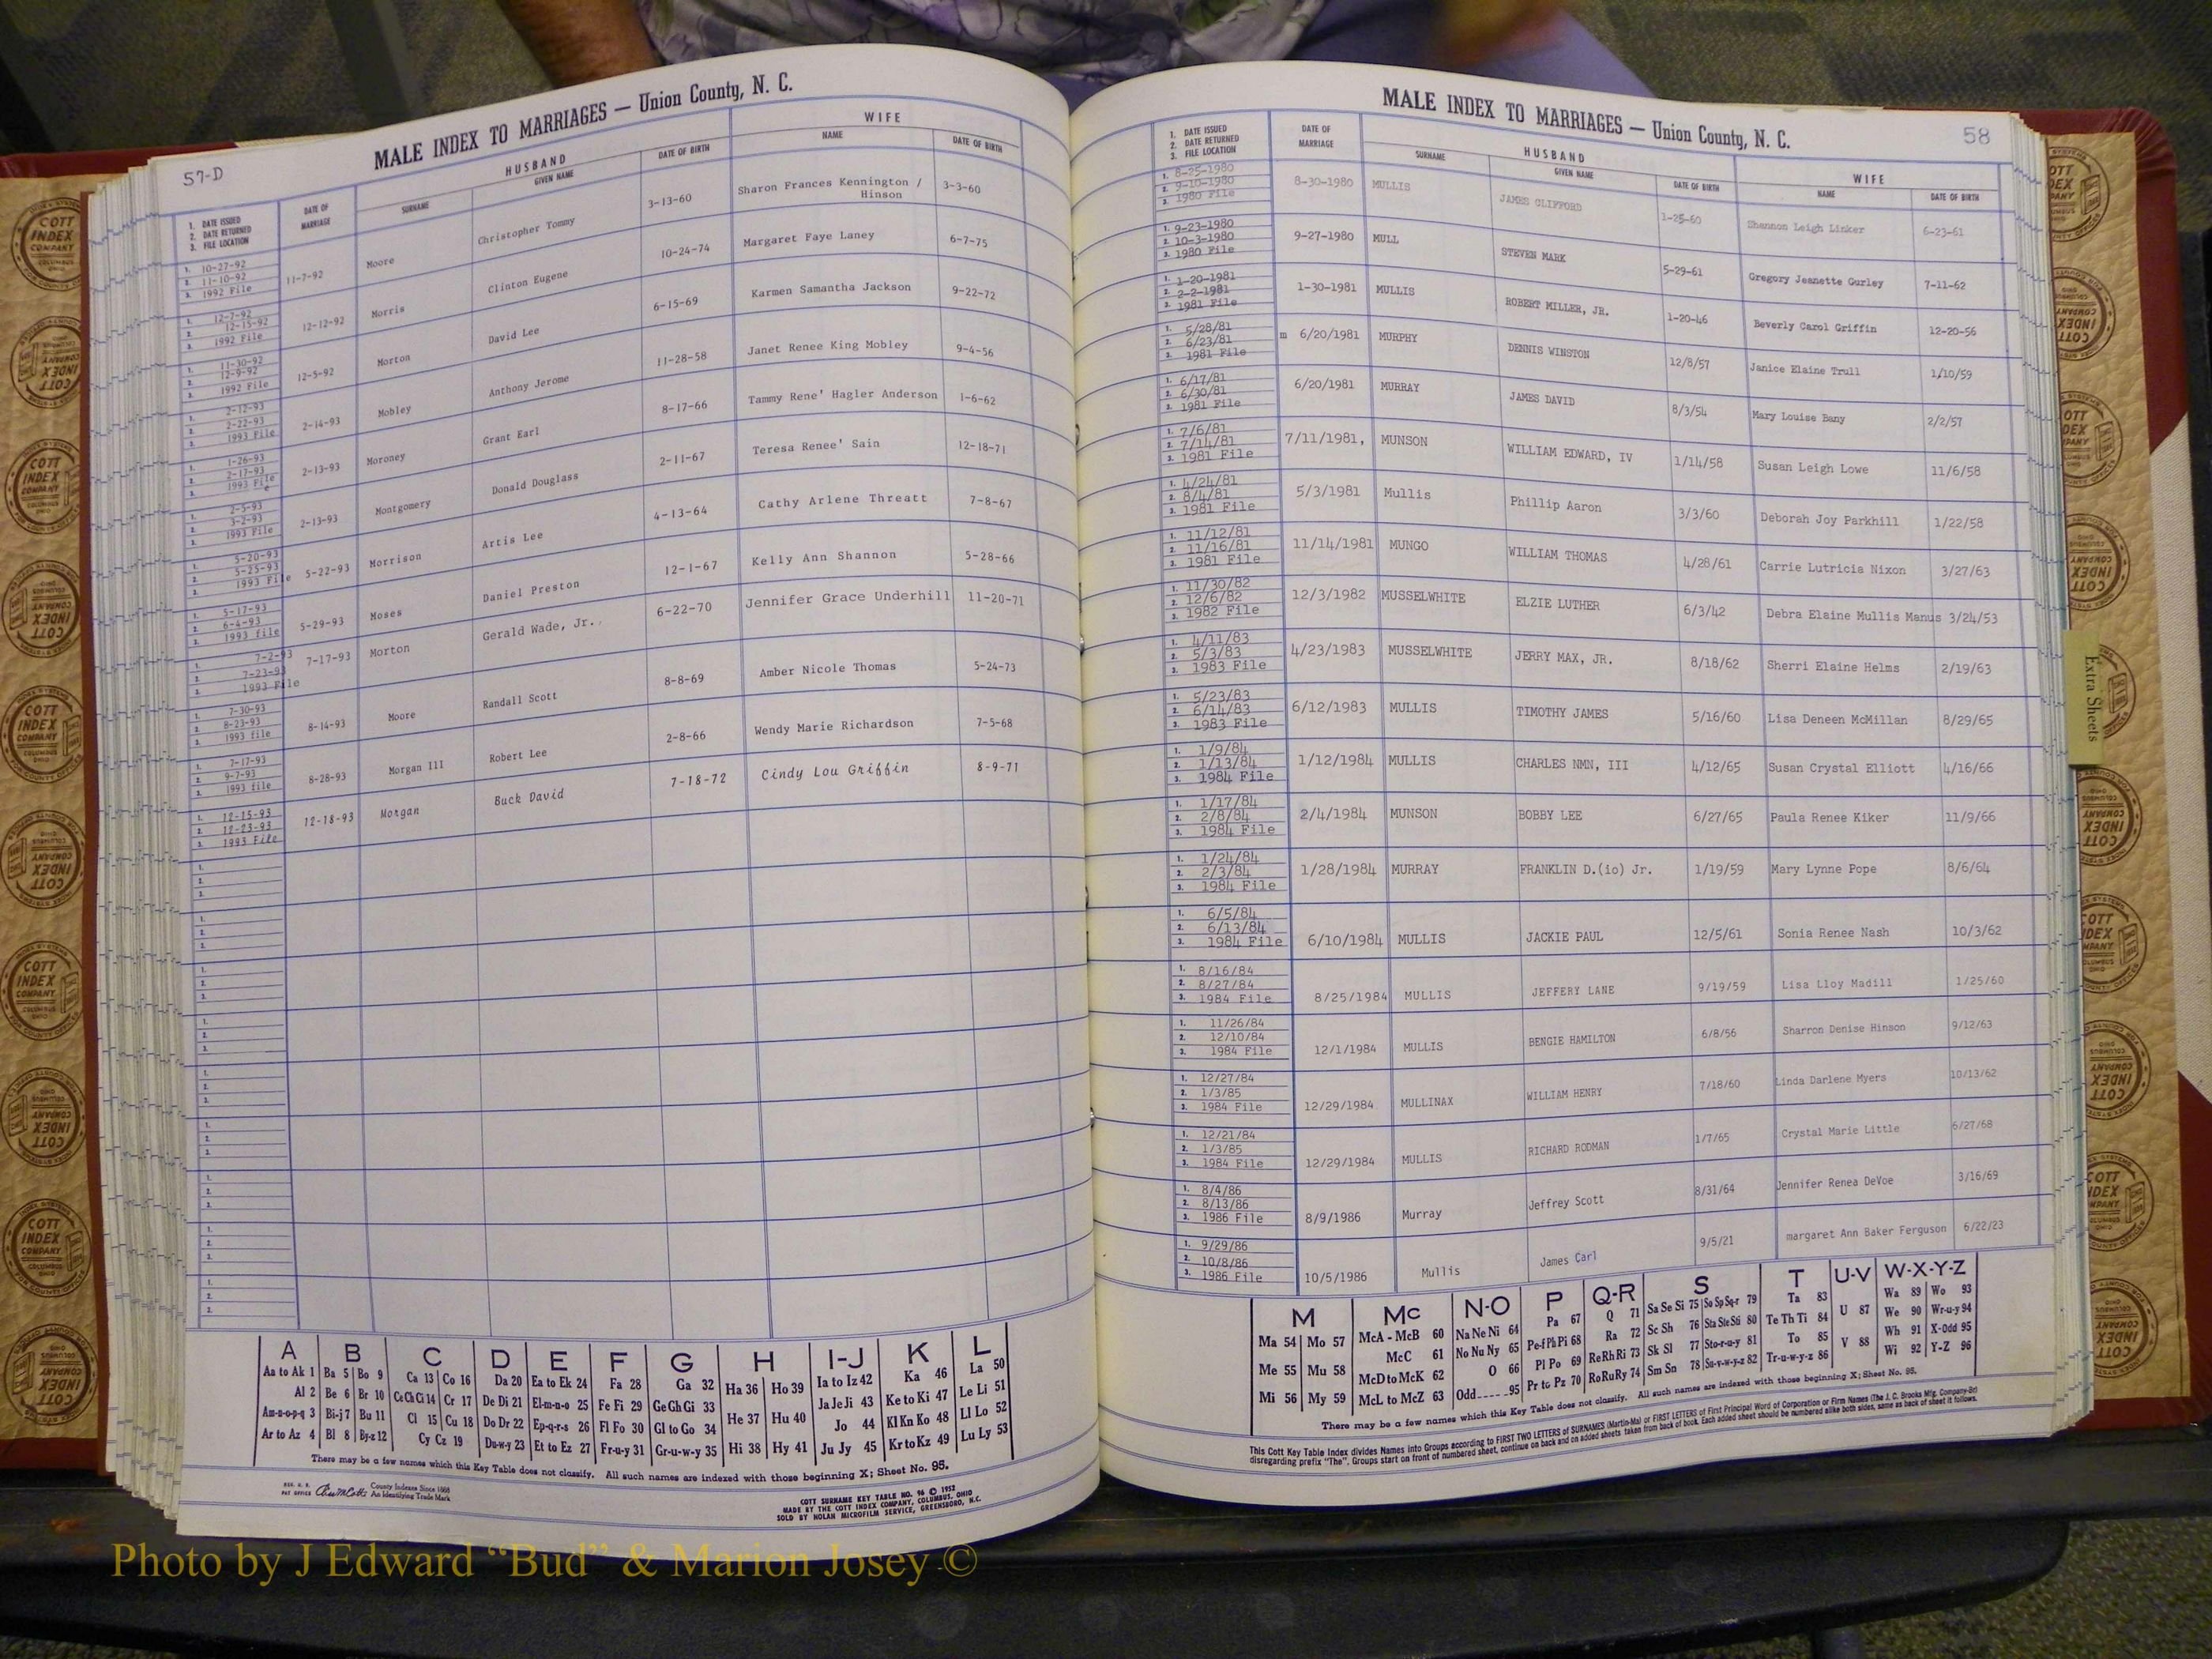 57-D
MALE INDEX TO MARRIAGES — Union County, N. C.
HUSBAND WIFE
1. DATE ISSUED 2. DATE RETURNED 3. FILE LOCATION DATE OF MARRIAGE SURNAME GIVEN NAME DATE OF BIRTH NAME DATE OF BIRTH
1. 10-27-92 2. 11-10-92 3. 1992 File 11-7-92 Moore Christopher Tommy 3-13-60 Sharon Frances Kennington / Hinson 3-3-60
1. 12-7-92 2. 12-15-92 3. 1992 File 12-12-92 Morris Clinton Eugene 10-24-74 Margaret Faye Laney 6-7-75
1. 11-30-92 2. 12-9-92 3. 1992 File 12-5-92 Morton David Lee 6-15-69 Karmen Samantha Jackson 9-22-72
1. 2-12-93 2. 2-22-93 3. 1993 File 2-14-93 Mobley Anthony Jerome 11-28-58 Janet Renee King Mobley 9-4-56
1. 1-26-93 2. 2-17-93 3. 1993 File 2-13-93 Moroney Grant Earl 8-17-66 Tammy Rene' Hagler Anderson 1-6-62
1. 2-5-93 2. 3-2-93 3. 1993 File 2-13-93 Montgomery Donald Douglass 2-11-67 Teresa Renee' Sain 12-18-71
1. 5-20-93 2. 5-25-93 3. 1993 File 5-22-93 Morrison Artis Lee 4-13-64 Cathy Arlene Threatt 7-8-67
1. 5-17-93 2. 6-4-93 3. 1993 file 5-29-93 Moses Daniel Preston 12-1-67 Kelly Ann Shannon 5-28-66
1. 7-2-93 2. 7-23-93 3. 1993 File 7-17-93 Morton Gerald Wade, Jr. 6-22-70 Jennifer Grace Underhill 11-20-71
1. 7-30-93 2. 8-23-93 3. 1993 file 8-14-93 Moore Randall Scott 8-8-69 Amber Nicole Thomas 5-24-73
1. 7-17-93 2. 9-7-93 3. 1993 file 8-28-93 Morgan III Robert Lee 2-8-66 Wendy Marie Richardson 7-5-68
1. 12-15-93 2. 12-23-93 3. 1993 File 12-18-93 Morgan Buck David 7-18-72 Cindy Lou Griffin 8-9-71
A B C D E F G H I-J K L
Aa to Ak 1 Ba 5 Bo 9 Ca 13 Co 16 Da 20 Ea to Ek 24 Fa 28 Ga 32 Ha 36 Ho 39 Ia to Iz 42 Ka 46 La 50
Al 2 Be 6 Br 10 Ce Ch Ci 14 Cr 17 De Di 21 El-m-n-o 25 Fe Fi 29 Ge Gh Gi 33 He 37 Hu 40 Ja Je Ji 43 Ke to Ki 47 Le Li 51
Am-n-o-p-q 3 Bi-j 7 Bu 11 Cl 15 Cu 18 Do Dr 22 Ep-q-r-s 26 Fl Fo 30 Gl to Go 34 Hi 38 Hy 41 Jo 44 Kl Kn Ko 48 Ll Lo 52
Ar to Az 4 Bl 8 By-z 12 Cy Cz 19 Du-w-y 23 Et to Ez 27 Fr-u-y 31 Gr-u-w-y 35 Ju Jy 45 Kr to Kz 49 Lu Ly 53
There may be a few names which this Key Table does not classify. All such names are indexed with those beginning X; Sheet No. 95.
County Indexes Since 1888
An Identifying Trade Mark
COTT SURNAME KEY TABLE NO. 96 © 1952
MADE BY THE COTT INDEX COMPANY, COLUMBUS, OHIO
SOLD BY NOLAN MICROFILM SERVICE, GREENSBORO, N.C.
58
MALE INDEX TO MARRIAGES — Union County, N. C.
HUSBAND WIFE
1. DATE ISSUED 2. DATE RETURNED 3. FILE LOCATION DATE OF MARRIAGE SURNAME GIVEN NAME DATE OF BIRTH NAME DATE OF BIRTH
1. 8-25-1980 2. 9-10-1980 3. 1980 File 8-30-1980 MULLIS JAMES CLIFFORD 1-25-60 Shannon Leigh Linker 6-23-61
1. 9-23-1980 2. 10-3-1980 3. 1980 File 9-27-1980 MULL STEVEN MARK 5-29-61 Gregory Jeanette Gurley 7-11-62
1. 1-20-1981 2. 2-2-1981 3. 1981 File 1-30-1981 MULLIS ROBERT MILLER, JR. 1-20-46 Beverly Carol Griffin 12-20-56
1. 5/28/81 2. 6/23/81 3. 1981 File m 6/20/1981 MURPHY DENNIS WINSTON 12/8/57 Janice Elaine Trull 1/10/59
1. 6/17/81 2. 6/30/81 3. 1981 File 6/20/1981 MURRAY JAMES DAVID 8/3/54 Mary Louise Bany 2/2/57
1. 7/6/81 2. 7/14/81 3. 1981 File 7/11/1981, MUNSON WILLIAM EDWARD, IV 1/14/58 Susan Leigh Lowe 11/6/58
1. 4/24/81 2. 8/4/81 3. 1981 File 5/3/1981 Mullis Phillip Aaron 3/3/60 Deborah Joy Parkhill 1/22/58
1. 11/12/81 2. 11/16/81 3. 1981 File 11/14/1981 MUNGO WILLIAM THOMAS 4/28/61 Carrie Lutricia Nixon 3/27/63
1. 11/30/82 2. 12/6/82 3. 1982 File 12/3/1982 MUSSELWHITE ELZIE LUTHER 6/3/42 Debra Elaine Mullis Manus 3/24/53
1. 4/11/83 2. 5/3/83 3. 1983 File 4/23/1983 MUSSELWHITE JERRY MAX, JR. 8/18/62 Sherri Elaine Helms 2/19/63
1. 5/23/83 2. 6/14/83 3. 1983 File 6/12/1983 MULLIS TIMOTHY JAMES 5/16/60 Lisa Deneen McMillan 8/29/65
1. 1/9/84 2. 1/13/84 3. 1984 File 1/12/1984 MULLIS CHARLES NMN, III 4/12/65 Susan Crystal Elliott 4/16/66
1. 1/17/84 2. 2/8/84 3. 1984 File 2/4/1984 MUNSON BOBBY LEE 6/27/65 Paula Renee Kiker 11/9/66
1. 1/24/84 2. 2/3/84 3. 1984 File 1/28/1984 MURRAY FRANKLIN D.(io) Jr. 1/19/59 Mary Lynne Pope 8/6/64
1. 6/5/84 2. 6/13/84 3. 1984 File 6/10/1984 MULLIS JACKIE PAUL 12/5/61 Sonia Renee Nash 10/3/62
1. 8/16/84 2. 8/27/84 3. 1984 File 8/25/1984 MULLIS JEFFERY LANE 9/19/59 Lisa Lloy Madill 1/25/60
1. 11/26/84 2. 12/10/84 3. 1984 File 12/1/1984 MULLIS BENGIE HAMILTON 6/8/56 Sharron Denise Hinson 9/12/63
1. 12/27/84 2. 1/3/85 3. 1984 File 12/29/1984 MULLINAX WILLIAM HENRY 7/18/60 Linda Darlene Myers 10/13/62
1. 12/21/84 2. 1/3/85 3. 1984 File 12/29/1984 MULLIS RICHARD RODMAN 1/7/65 Crystal Marie Little 6/27/68
1. 8/4/86 2. 8/13/86 3. 1986 File 8/9/1986 Murray Jeffrey Scott 8/31/64 Jennifer Renea DeVoe 3/16/69
1. 9/29/86 2. 10/8/86 3. 1986 File 10/5/1986 Mullis James Carl 9/5/21 margaret Ann Baker Ferguson 6/22/23
M Mc N-O P Q-R S T U-V W-X-Y-Z
Ma 54 Mo 57 McA - McB 60 Na Ne Ni 64 Pa 67 Q 71 Sa Se Si 75 So Sp Sq-r 79 Ta 83 U 87 Wa 89 Wo 93
Me 55 Mu 58 McC 61 No Nu Ny 65 Pe-f Ph Pi 68 Ra 72 Sc Sh 76 Sta Ste Sti 80 Te Th Ti 84 V 88 We 90 Wr-u-y 94
Mi 56 My 59 McD to McK 62 O 66 Pl Po 69 Re Rh Ri 73 Sk Sl 77 Sto-r-u-y 81 To 85 Wh 91 X-Odd 95
McL to McZ 63 Odd 95 Pr to Pz 70 Ro Ru Ry 74 Sm Sn 78 Su-v-w-y-z 82 Tr-u-w-y-z 86 Wi 92 Y-Z 96
There may be a few names which this Key Table does not classify. All such names are indexed with those beginning X; Sheet No. 95.
This Cott Key Table Index divides Names into Groups according to FIRST TWO LETTERS of SURNAMES (Martin-Ma) or FIRST LETTERS of First Principal Word of Corporation or Firm Names (The J. C. Brooks Mfg. Company-Br)
disregarding prefix "The". Groups start on front of numbered sheet, continue on back and on added sheets taken from back of book. Each added sheet should be numbered alike both sides, same as back of sheet it follows.
Extra Sheets
COTT INDEX COMPANY COLUMBUS OHIO
Photo by J Edward “Bud” & Marion Josey ©